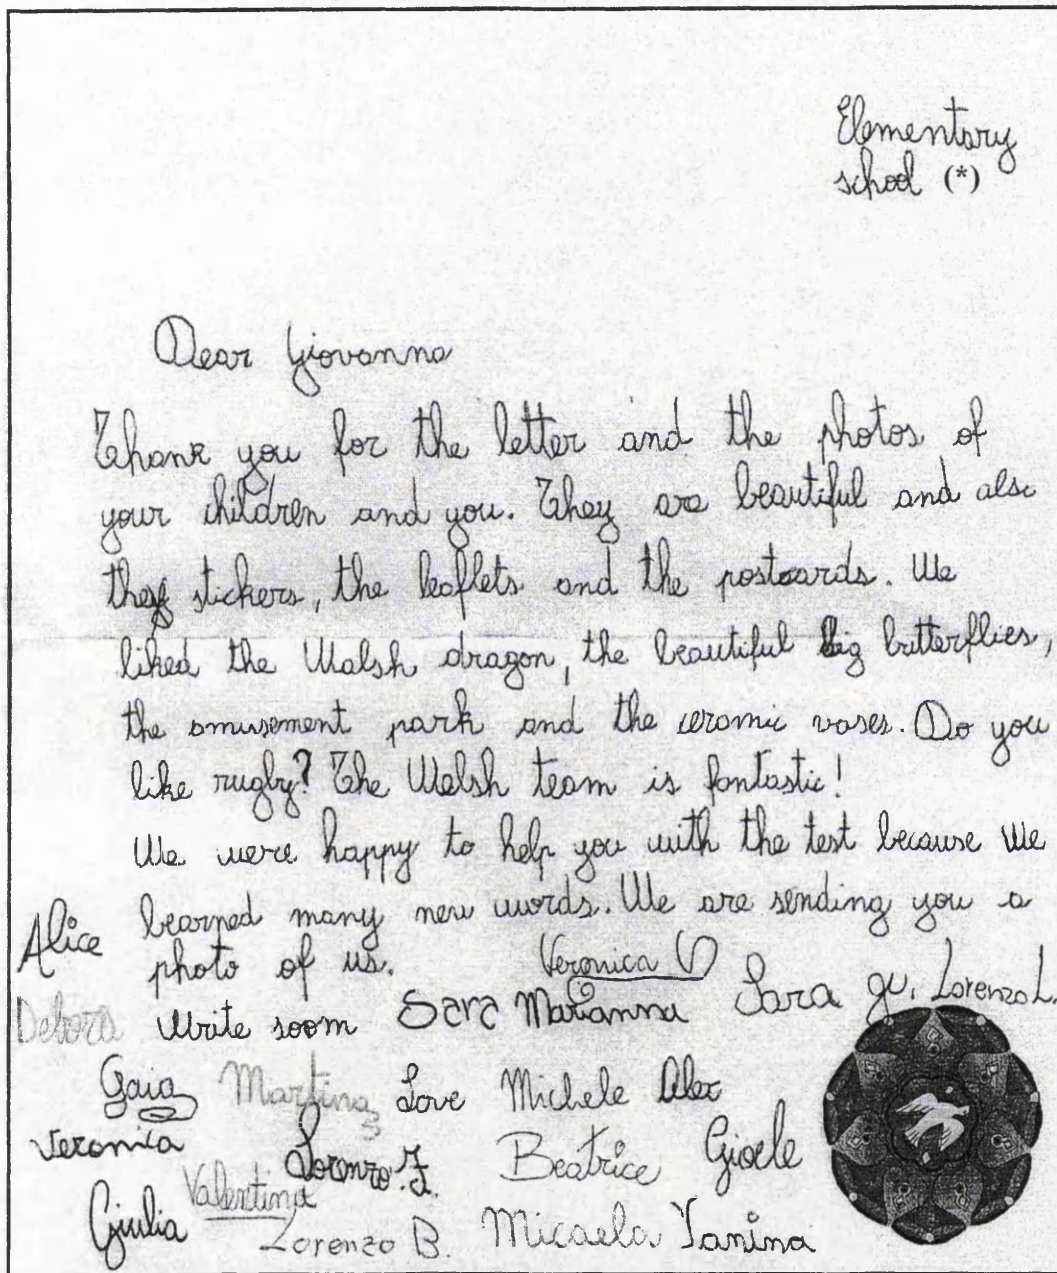 Elementary
school (*)
Dear Giovanna
Thank you for the letter and the photos of
your children and you. They are beautiful and also
the stickers, the leaflets and the postcards. We
liked the Walsh dragon, the beautiful big butterflies,
the amusement park and the ceramic vases. Do you
like rugby? The Welsh team is fantastic!
We were happy to help you with the test because We
learned many new words. We are sending you a
Alice photo of us. Veronica
Debora Write soom Sara Marianna Sara gu. Lorenzo L.
Gaia Martina Love Michele Alex
Veronica Lorenzo.F. Beatrice Gioele
Valentina
Giulia Lorenzo B. Micaela Yanina